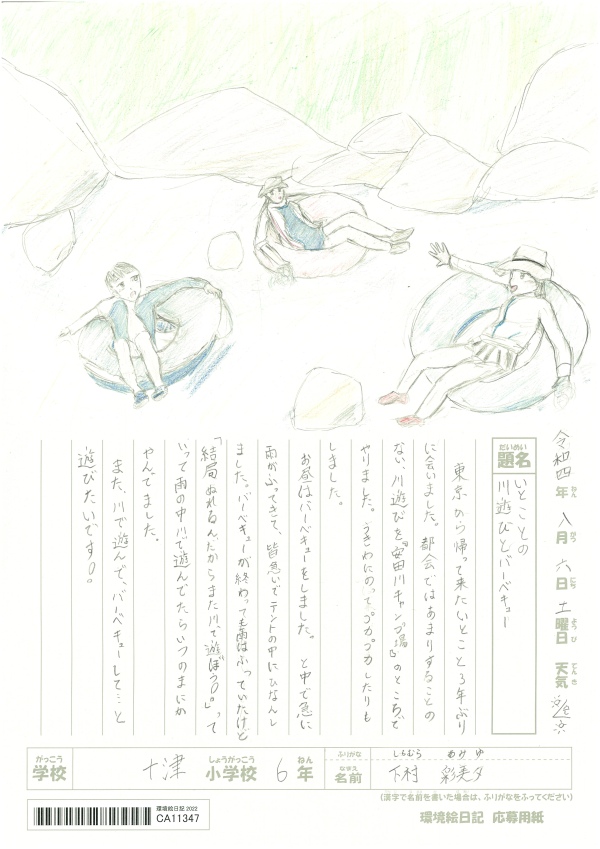 令和四年 八月 六日 土曜日 天気
ねん がつ にち ようび てんき
だいめい
題名
いとことの
川遊びとバーベキュー
東京から帰って来たいとこと3年ぶり
に会いました。都会ではあまりすることの
ない、川遊びを『安田川キャンプ場』のところで
やりました。うきわにのってプカプカしたりも
しました。
お昼はバーベキューをしました。と中で急に
雨がふってきて、皆急いでテントの中にひなんし
ました。バーベキューが終わっても雨はふっていたけど
「結局ぬれるんだからまた川で遊ぼう。」って
いって雨の中川で遊んでたらいつのまにか
やんでました。
また、川で遊んで、バーベキューしてこと
遊びたいです。
がっこう しょうがっこう ねん ふりがな しもむら あみゆ
学校 十津 小学校 6年 なまえ 名前 下村 彩美夕
(漢字で名前を書いた場合は、ふりがなをふってください)
環境絵日記2022
CA11347
環境絵日記 応募用紙